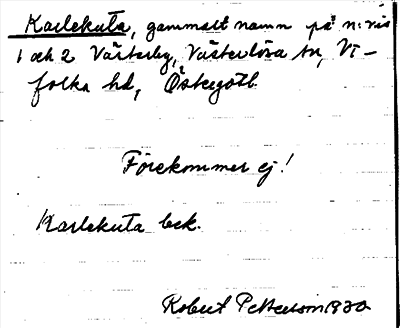 Karlekuta, gammalt namn på n:ris
1 och 2 Västerby, Västerlösa sn, Vi-
folka hd, Östergötl.
Förekommer ej!
Karlekuta bek.
Robert Petterson 1930